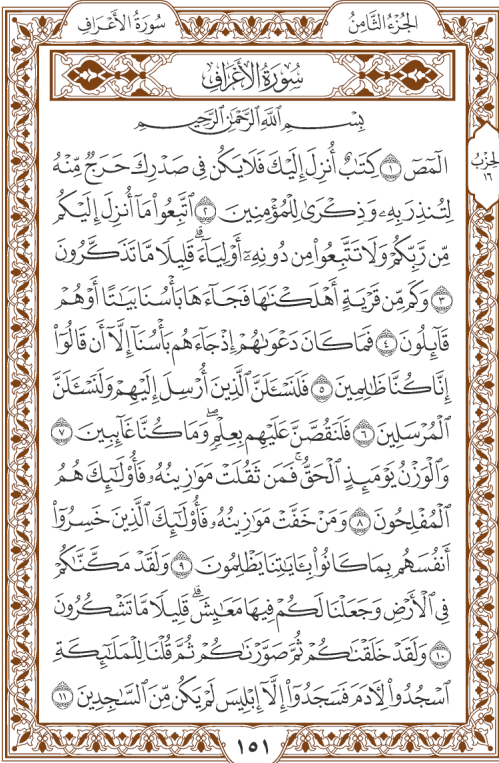 سُورَةُ الْأَعْرَافِ
الجُزْءُ الثَّامِنُ
سُورَةُ الْأَعْرَافِ
لحِزْبُ
١٦
بِسْمِ ٱللَّهِ ٱلرَّحْمَٰنِ ٱلرَّحِيمِ
الٓمٓصٓ ١ كِتَٰبٌ أُنزِلَ إِلَيْكَ فَلَا يَكُن فِى صَدْرِكَ حَرَجٌ مِّنْهُ
لِتُنذِرَ بِهِۦ وَذِكْرَىٰ لِلْمُؤْمِنِينَ ٢ ٱتَّبِعُوا۟ مَآ أُنزِلَ إِلَيْكُم
مِّن رَّبِّكُمْ وَلَا تَتَّبِعُوا۟ مِن دُونِهِۦٓ أَوْلِيَآءَ ۗ قَلِيلًا مَّا تَذَكَّرُونَ
٣ وَكَم مِّن قَرْيَةٍ أَهْلَكْنَٰهَا فَجَآءَهَا بَأْسُنَا بَيَٰتًا أَوْ هُمْ
قَآئِلُونَ ٤ فَمَا كَانَ دَعْوَىٰهُمْ إِذْ جَآءَهُم بَأْسُنَآ إِلَّآ أَن قَالُوٓا۟
إِنَّا كُنَّا ظَٰلِمِينَ ٥ فَلَنَسْـَٔلَنَّ ٱلَّذِينَ أُرْسِلَ إِلَيْهِمْ وَلَنَسْـَٔلَنَّ
ٱلْمُرْسَلِينَ ٦ فَلَنَقُصَّنَّ عَلَيْهِم بِعِلْمٍ ۖ وَمَا كُنَّا غَآئِبِينَ ٧
وَٱلْوَزْنُ يَوْمَئِذٍ ٱلْحَقُّ ۚ فَمَن ثَقُلَتْ مَوَٰزِينُهُۥ فَأُو۟لَٰٓئِكَ هُمُ
ٱلْمُفْلِحُونَ ٨ وَمَنْ خَفَّتْ مَوَٰزِينُهُۥ فَأُو۟لَٰٓئِكَ ٱلَّذِينَ خَسِرُوٓا۟
أَنفُسَهُم بِمَا كَانُوا۟ بِـَٔايَٰتِنَا يَظْلِمُونَ ٩ وَلَقَدْ مَكَّنَّٰكُمْ
فِى ٱلْأَرْضِ وَجَعَلْنَا لَكُمْ فِيهَا مَعَٰيِشَ ۗ قَلِيلًا مَّا تَشْكُرُونَ
١٠ وَلَقَدْ خَلَقْنَٰكُمْ ثُمَّ صَوَّرْنَٰكُمْ ثُمَّ قُلْنَا لِلْمَلَٰٓئِكَةِ
ٱسْجُدُوا۟ لِءَادَمَ فَسَجَدُوٓا۟ إِلَّآ إِبْلِيسَ لَمْ يَكُن مِّنَ ٱلسَّٰجِدِينَ ١١
١٥١